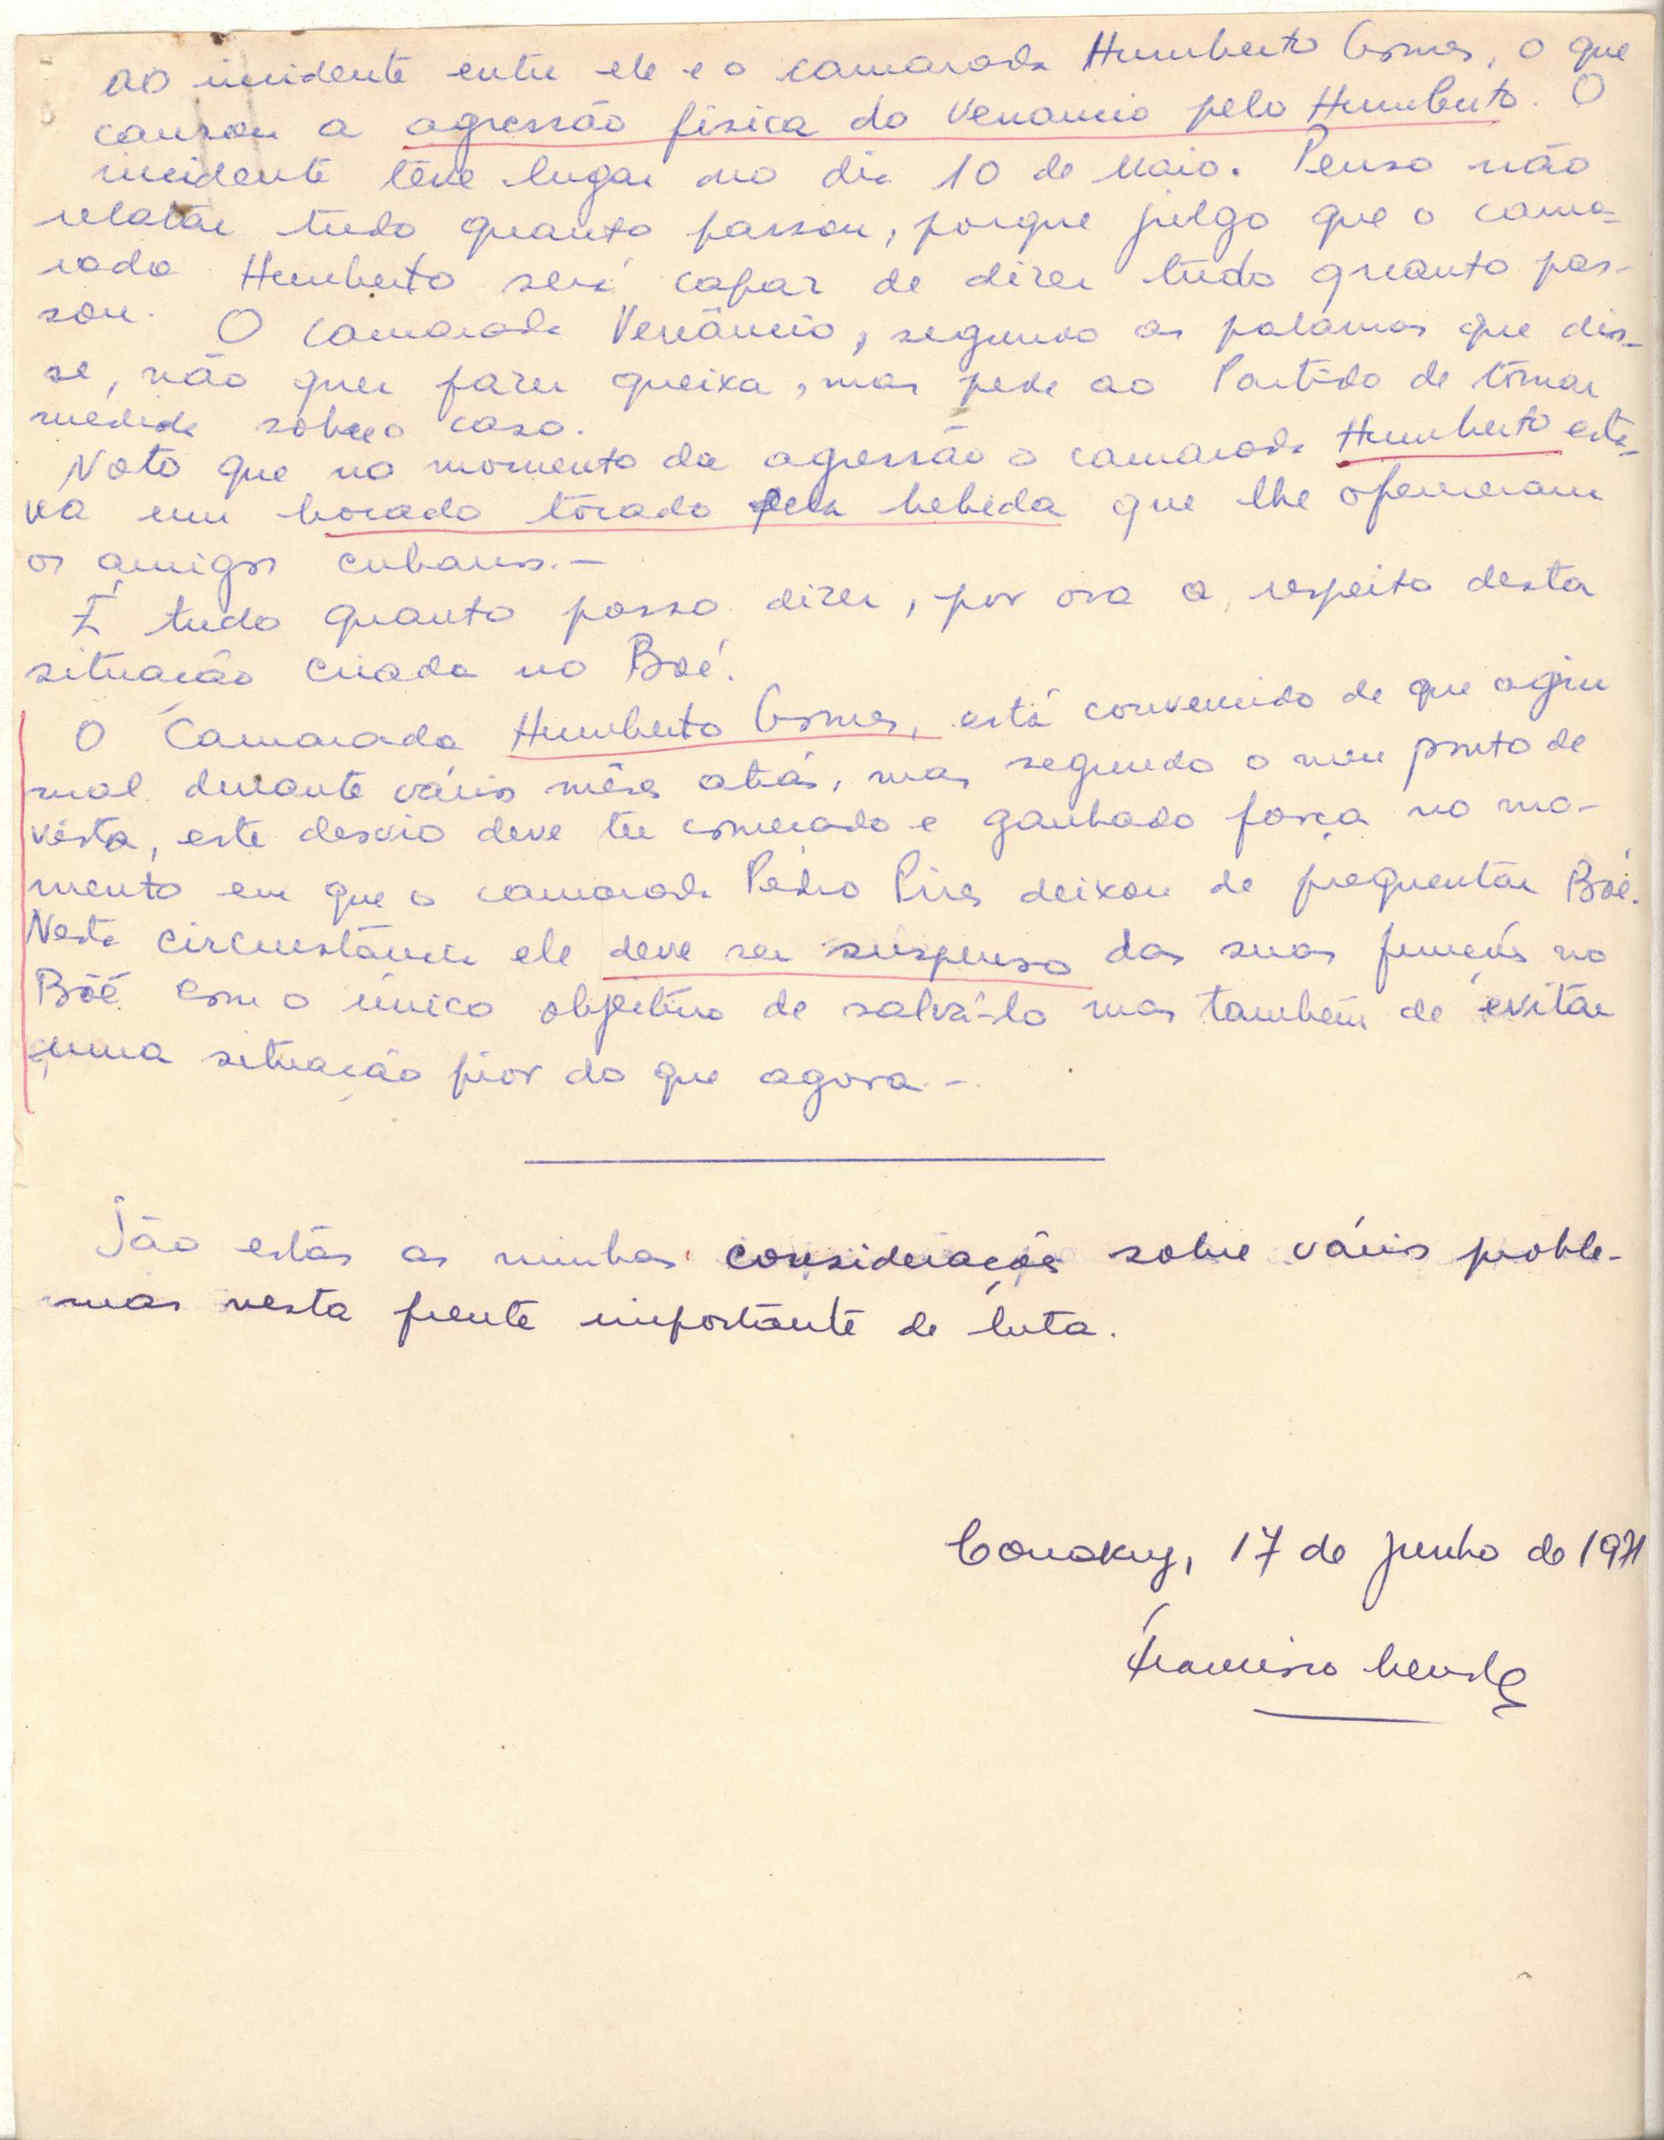 ao incidente entre ele e o camarada Humberto Gomes, o que
causou a agressão física do Venancio pelo Humberto. O
incidente têve lugar no dia 10 de Maio. Penso não
relatar tudo quanto passou, porque julgo que o cama-
rada Humberto será capaz de dizer tudo quanto pas-
sou. O camarada Venâncio, segundo as palavras que dis-
se, não quer fazer queixa, mas pede ao Partido de tomar
medida sobre o caso.
Noto que no momento da agressão o camarada Humberto esta-
va um bocado tocado pela bebida que lhe ofereceram
os amigos cubanos.-
É tudo quanto posso dizer, por ora a respeito desta
situação criada no Boé.
O Camarada Humberto Gomes, está convencido de que agiu
mal durante vários mêses atrás, mas segundo o meu ponto de
vista, este desvio deve ter começado e ganhado força no mo-
mento em que o camarada Pedro Pires deixou de frequentar Boé.
Nesta circunstância ele deve ser suspenso das suas funções no
Boé com o único objectivo de salvá-lo mas também de evitar
uma situação pior do que agora.-
São estas as minhas considerações sobre vários proble-
mas nesta frente importante de luta.
Conakry, 17 de Junho de 1971
Francisco Mendes